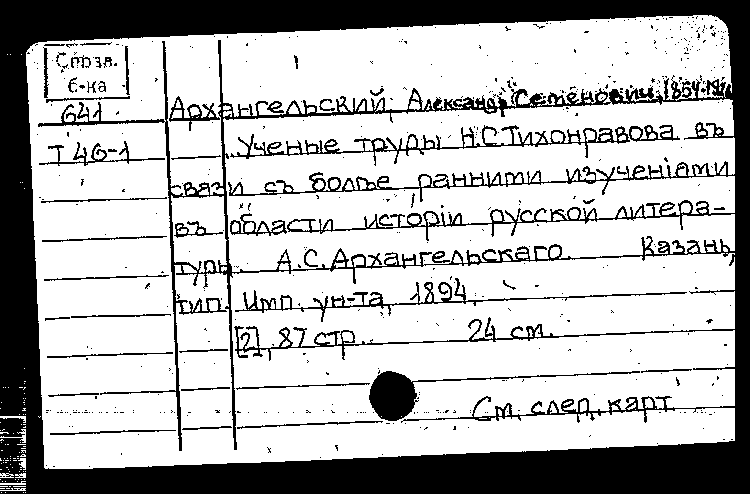 Справ.
б-ка
641
Т 46-1
Архангельский, Александр Семенович, 1854-1926
...Ученые труды Н.С.Тихонравова въ
связи съ болѣе ранними изученіями
въ области исторіи русской литера-
туры. А.С.Архангельскаго. Казань,
тип. Имп. ун-та, 1894.
[2], 87 стр. 24 см.
См. след. карт.